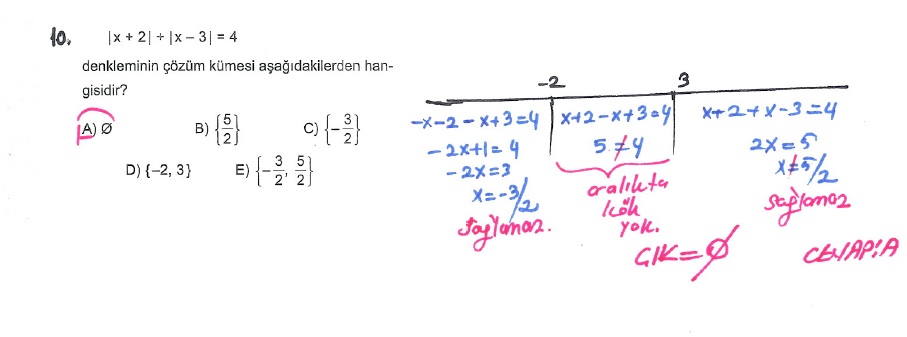 10. |x + 2| + |x – 3| = 4
denkleminin çözüm kümesi aşağıdakilerden han-
gisidir?
A) Ø B) {5/2} C) {-3/2}
D) {–2, 3} E) {-3/2, 5/2}
-2 3
-x-2-x+3=4
-2x+1=4
-2x=3
x=-3/2
sağlamaz.
x+2-x+3=4
5≠4
aralıkta
kök
yok.
x+2+x-3=4
2x=5
x≠5/2
sağlamaz
ÇK=Ø
CEVAP:A